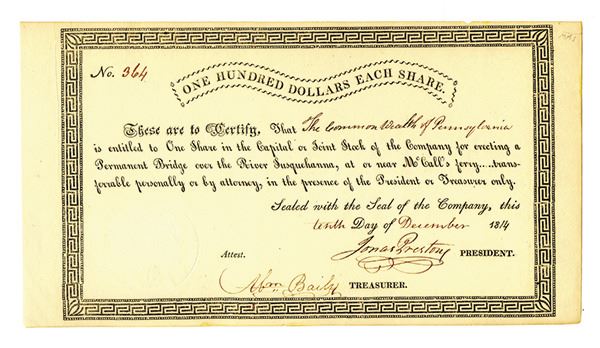 No. 364
ONE HUNDRED DOLLARS EACH SHARE.
These are to Certify, That The Common Wealth of Pennsylvania
is entitled to One Share in the Capital or Joint Stock of the Company for erecting a
Permanent Bridge over the River Susquehanna, at or near McCall's ferry....trans-
ferrable personally or by attorney, in the presence of the President or Treasurer only.
Sealed with the Seal of the Company, this
tenth Day of December 1814
Jonas Preston PRESIDENT.
Attest.
Abm Baily TREASURER.